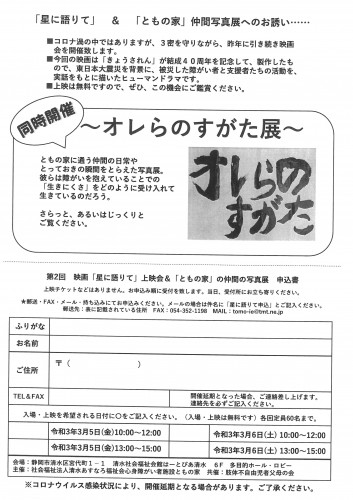 「星に語りて」 & 「ともの家」仲間写真展へのお誘い……
■コロナ渦の中ではありますが、３密を守りながら、昨年に引き続き映画
会を開催致します。
■今回の映画は「きょうされん」が結成４０周年を記念して、製作したもの
で、東日本大震災を背景に、被災した障がい者と支援者たちの活動を、
実話をもとに描いたヒューマンドラマです。
■上映は無料ですので、ぜひ、この機会にご鑑賞ください。
同時開催
～オレらのすがた展～
ともの家に通う仲間の日常や
とっておきの瞬間をとらえた写真展。
彼らは障がいを抱えていることでの
「生きにくさ」をどのように受け入れて
生きているのだろう。
さらっと、あるいはじっくりと
ご覧ください。
オレらの
すがた
第2回 映画「星に語りて」上映会&「ともの家」の仲間の写真展 申込書
上映チケットなどはありません。お申込み順に受付を致します。当日、受付所にお立ち寄りください。
★郵送・FAX・メール・持ち込みにてお申込みできます。メールの場合は件名に「星に語りて申込」とご記入ください。
郵送先：表に記載されている住所 FAX：054-352-1198 MAIL：tomo-ie@tmt.ne.jp
ふりがな
お名前
ご住所
〒（ ）
TEL＆FAX
開催延期となった場合、ご連絡差し上げます。
連絡先を必ずご記入ください。
入場・上映を希望される日付に○をご記入ください。（入場・上映は無料です）各回定員60名まで。
令和3年3月5日(金)10:00～12:00
令和3年3月6日(土)10:00～12:00
令和3年3月5日(金)13:00～15:00
令和3年3月6日(土)13:00～15:00
会場：静岡市清水区宮代町１-１ 清水社会福祉会館はーとぴあ清水 ６F 多目的ホール・ロビー
主催：社会福祉法人清水あすなろ福祉会心身障がい者施設ともの家 共催：肢体不自由児者父母の会
※コロナウイルス感染状況により、開催延期となる場合がございます。ご了承ください。